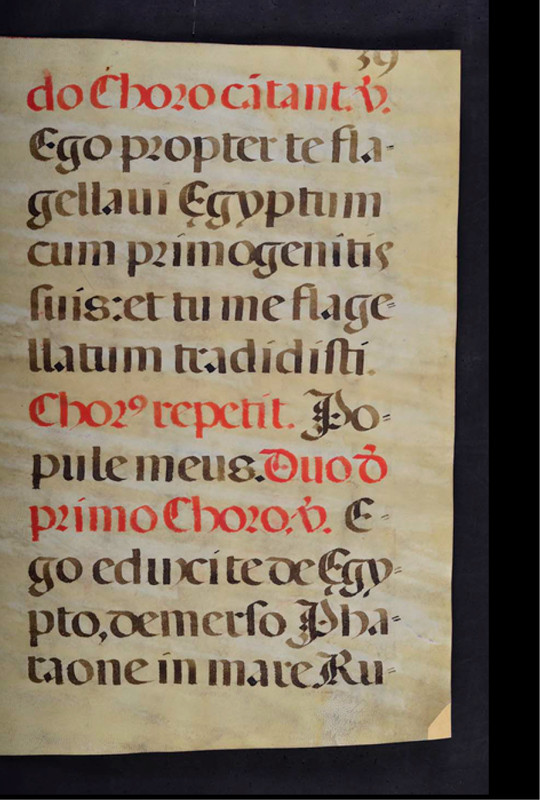 39
do Choro cãtant. ℣.
Ego propter te fla-
gellaui Egyptum
cum primogenitis
suis: et tu me flage=
llatum tradidisti.
Chorꝰ repetit. Po=
pule meus. Duo đ
primo Choro, ℣. E=
go eduxi te de Egy=
pto, demerso Pha=
raone in mare Ru=